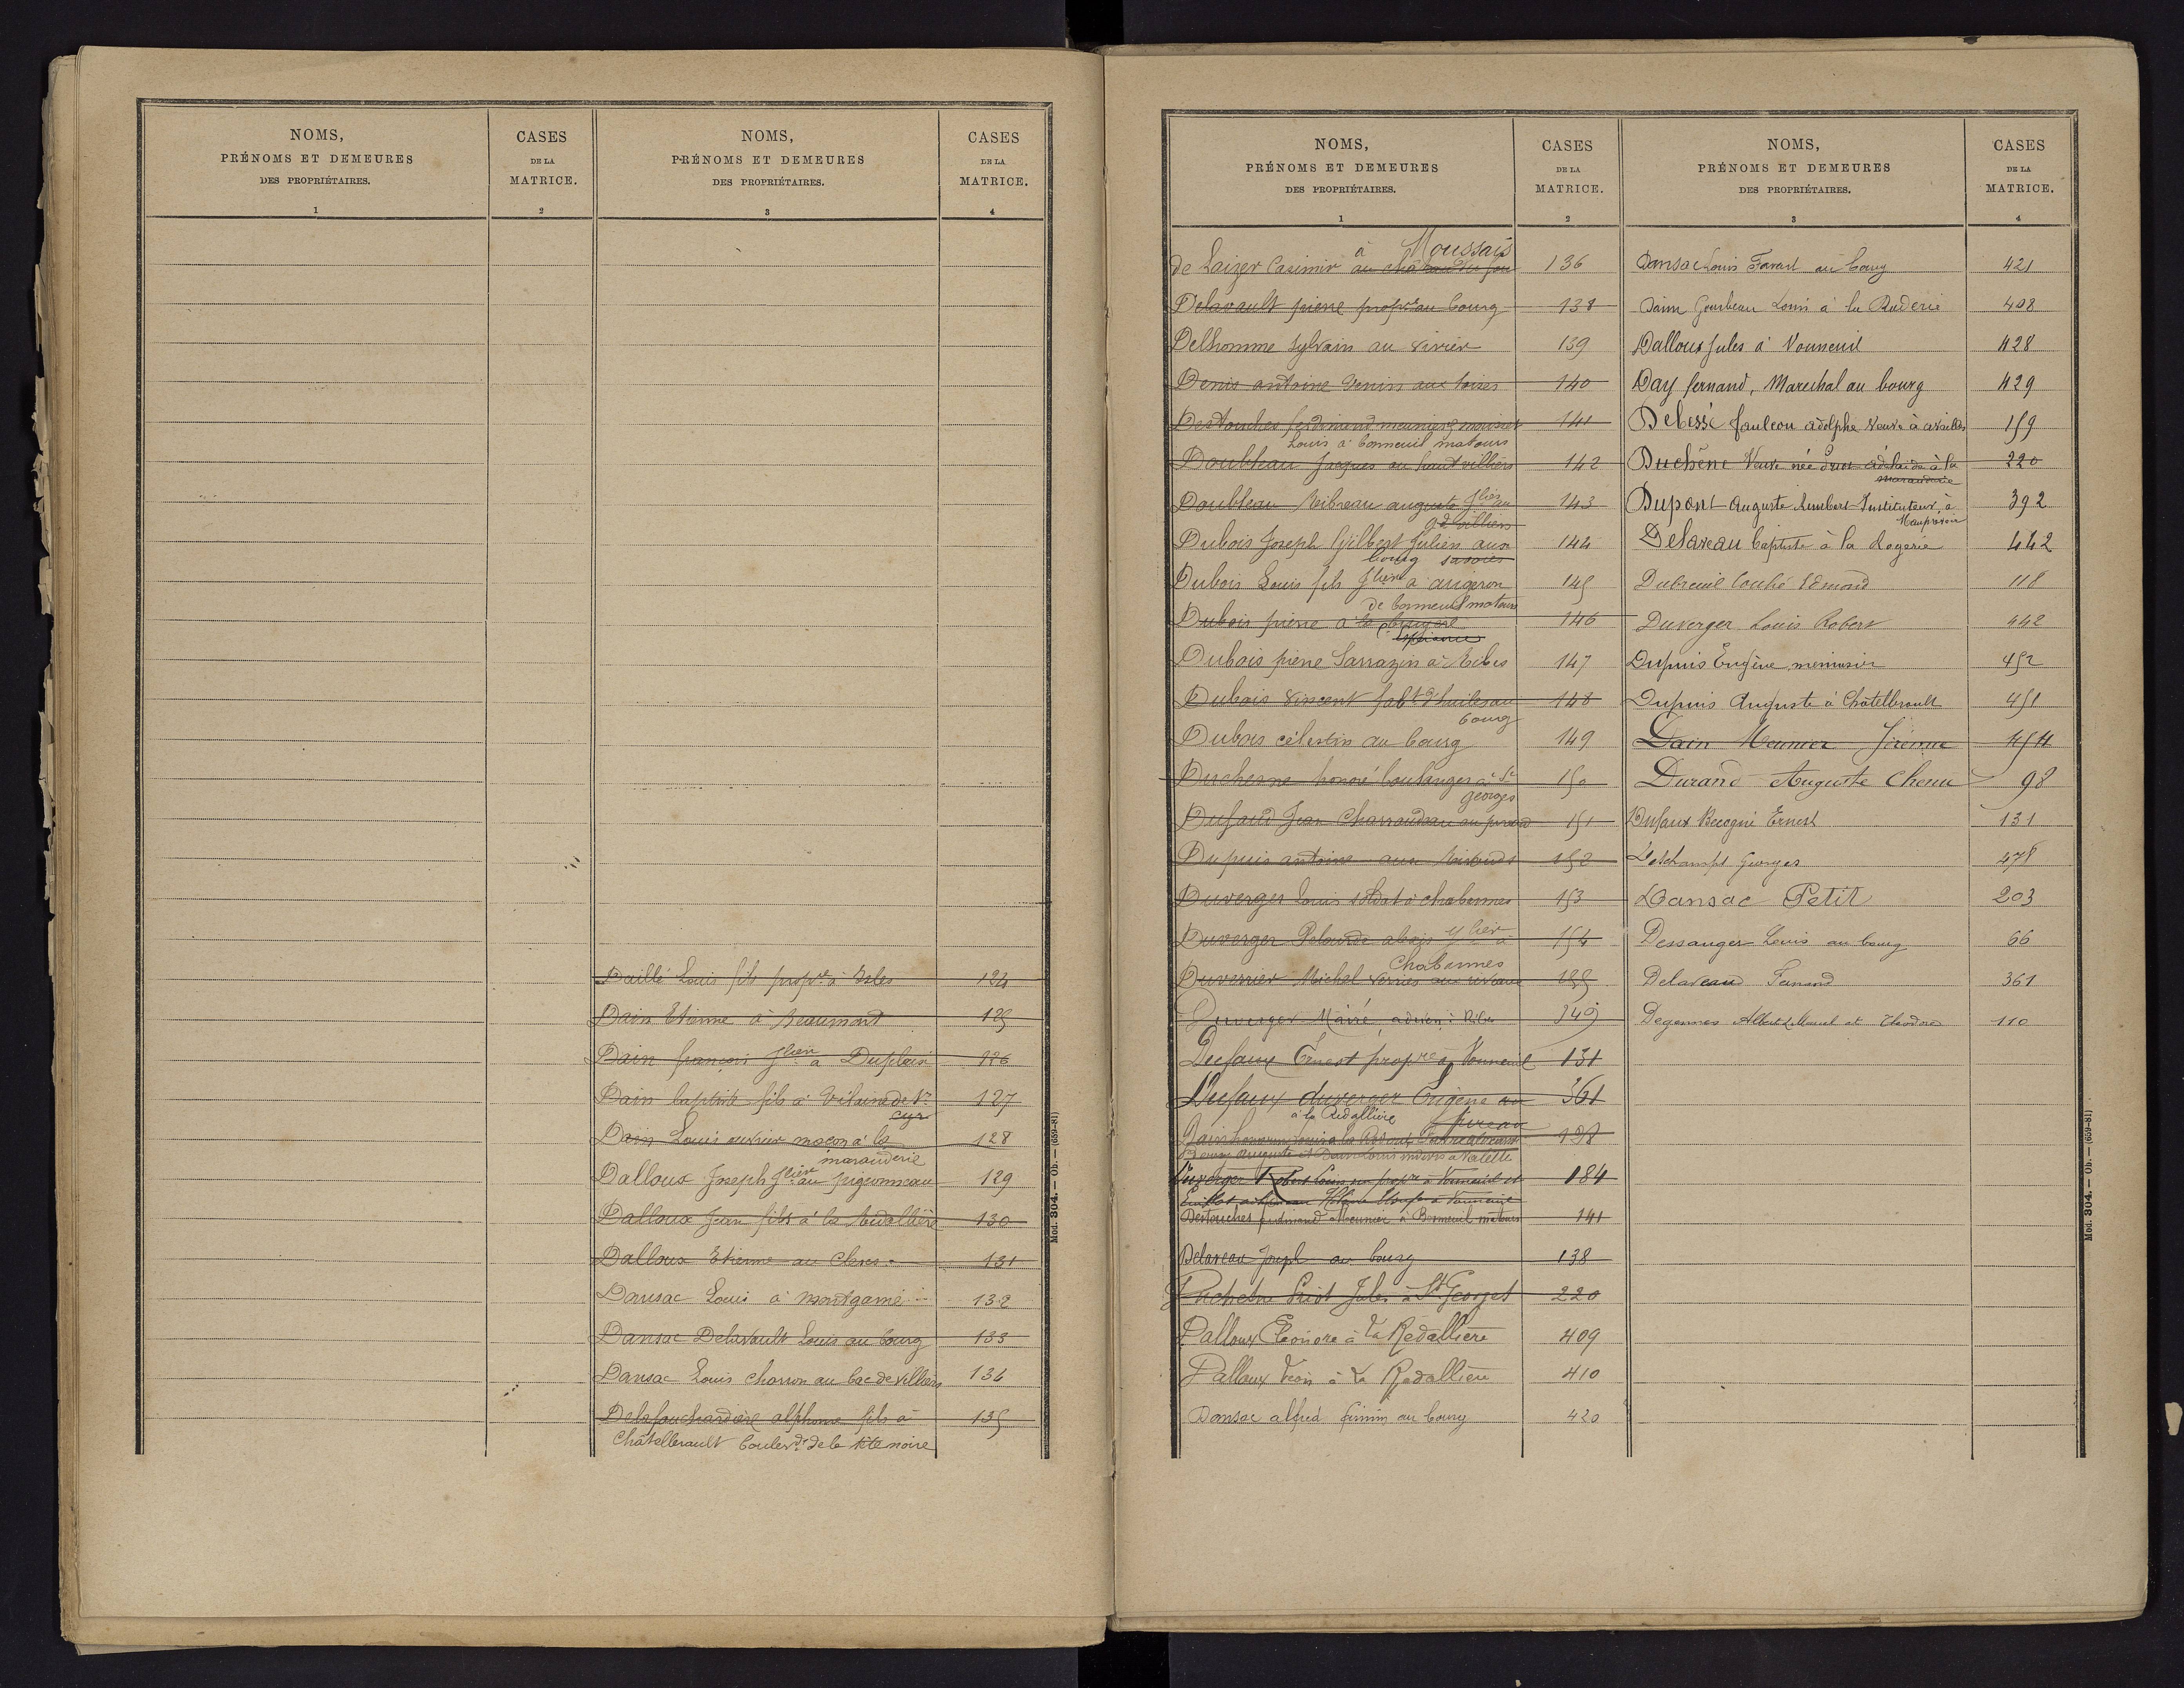 NOMS,
PRÉNOMS ET DEMEURES
DES PROPRIÉTAIRES.
1
CASES
DE LA
MATRICE.
2
NOMS,
PRÉNOMS ET DEMEURES
DES PROPRIÉTAIRES.
3
CASES
DE LA
MATRICE.
4
Daillé Louis fils propre à 124
Dain Etienne à Beaumont 125
Dain françois Jlier à Duplaisi 126
Dain baptiste fils à de St 127
cyr
Dain Louis ouvrier maçon à la 128
marauderie
Dalloux Joseph Jlier au pigeonneau 129
Dalloux Jean fils à la Redallière 130
Dalloux Etienne au Clares 131
Dansac Louis à montgamé 132
Dansac Delavault Louis au bourg 133
Dansac Louis charron au bac de villiers 134
Delafouchardière alphonse fils à 135
Châtellerault boulevd de la tête noire
Mod. 304. — Ob. — (659-81)
NOMS,
PRÉNOMS ET DEMEURES
DES PROPRIÉTAIRES.
1
CASES
DE LA
MATRICE.
2
à Moussais
de Laizer Casimir au château du fou 136
Delavault pierre propre au bourg 138
Delhomme Sylvain au vivier 139
Denis antoine aux toises 140
Destouches ferdinand meunier 141
Louis à bonneuil matours
Doubleau Jacques au haut villiers 142
Doubleau Ribreau auguste Jlier au 143
gd villiers
Dubois Joseph Gilbert Julien aux 144
bourg
Dubois Louis fils Jlier à arigeron 145
de bonneuil matours
Dubois pierre à la 146
espérance
Dubois pierre Sarrazin à Ribes 147
Dubois vincent fabt d'huiles au 148
bourg
Dubois célestin au bourg 149
Duchesne honoré boulanger à St 150
georges
Dufaud Jean Charraudeau au 151
Dupuis antoine aux 152
Duverger Louis soldat à chabonnes 153
Duverger Pelourde alexis Jlier à 154
Chabonnes
Duverrier Michel aux 155
Duverger Mairé adrien à Ribes 349
Dufaux Ernest propre à Vouneuil 131
Dufaux duverger Eugène au 361
à la Redallière
Dain 128
Duverger Robert Louis propre à Vouneuil et 184
Destouches ferdinand Meunier à Bonneuil matours 141
Delaveau Joseph au bourg 138
Duchêne Jules à St Georges 220
Dalloux Eléonore à la Redallière 409
Dalloux Léon à La Redallière 410
Dansac alfred firmin au bourg 420
NOMS,
PRÉNOMS ET DEMEURES
DES PROPRIÉTAIRES.
3
CASES
DE LA
MATRICE.
4
Dansac Louis Favard au bourg 421
Dain Gourbeau Louis à la Ruderie 408
Dalloux Jules à Vouneuil 428
Day fernand, Marechal au bourg 429
Debessé fauleou adolphe veuve à availles 159
Duchêne Veuve née adelaïde à la 220
marauderie
Dupont Auguste Instituteur, à 392
Mauprevoir
Delaveau baptiste à la Rogerie 442
Dubreuil Couhé Edmond 118
Duverger Louis Robert 442
Dupuis Eugène menuisier 452
Dupuis Auguste à Châtellerault 451
Dain Meunier Jérémie 454
Durand Auguste Chenu 98
Dufaux Ernest 131
Deschamps Georges 478
Dansac Petit 203
Dessanger Louis au bourg 66
Delaveau Fernand 361
Degennes Albert, Marcel et Théodore 110
Mod. 304. — Ob. — (659-81)